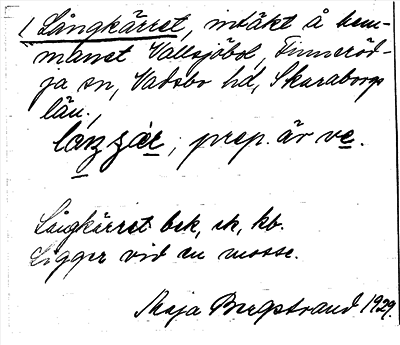 1 Långkärret, intäkt å hem-
manet Vallsjöbol, Finneröd-
ja sn, Vadsbo hd, Skaraborgs
län.,
prep. är ve.
Långkärret bek, ek, kb.
Ligger vid en mosse.
Maja Bergstrand 1929.